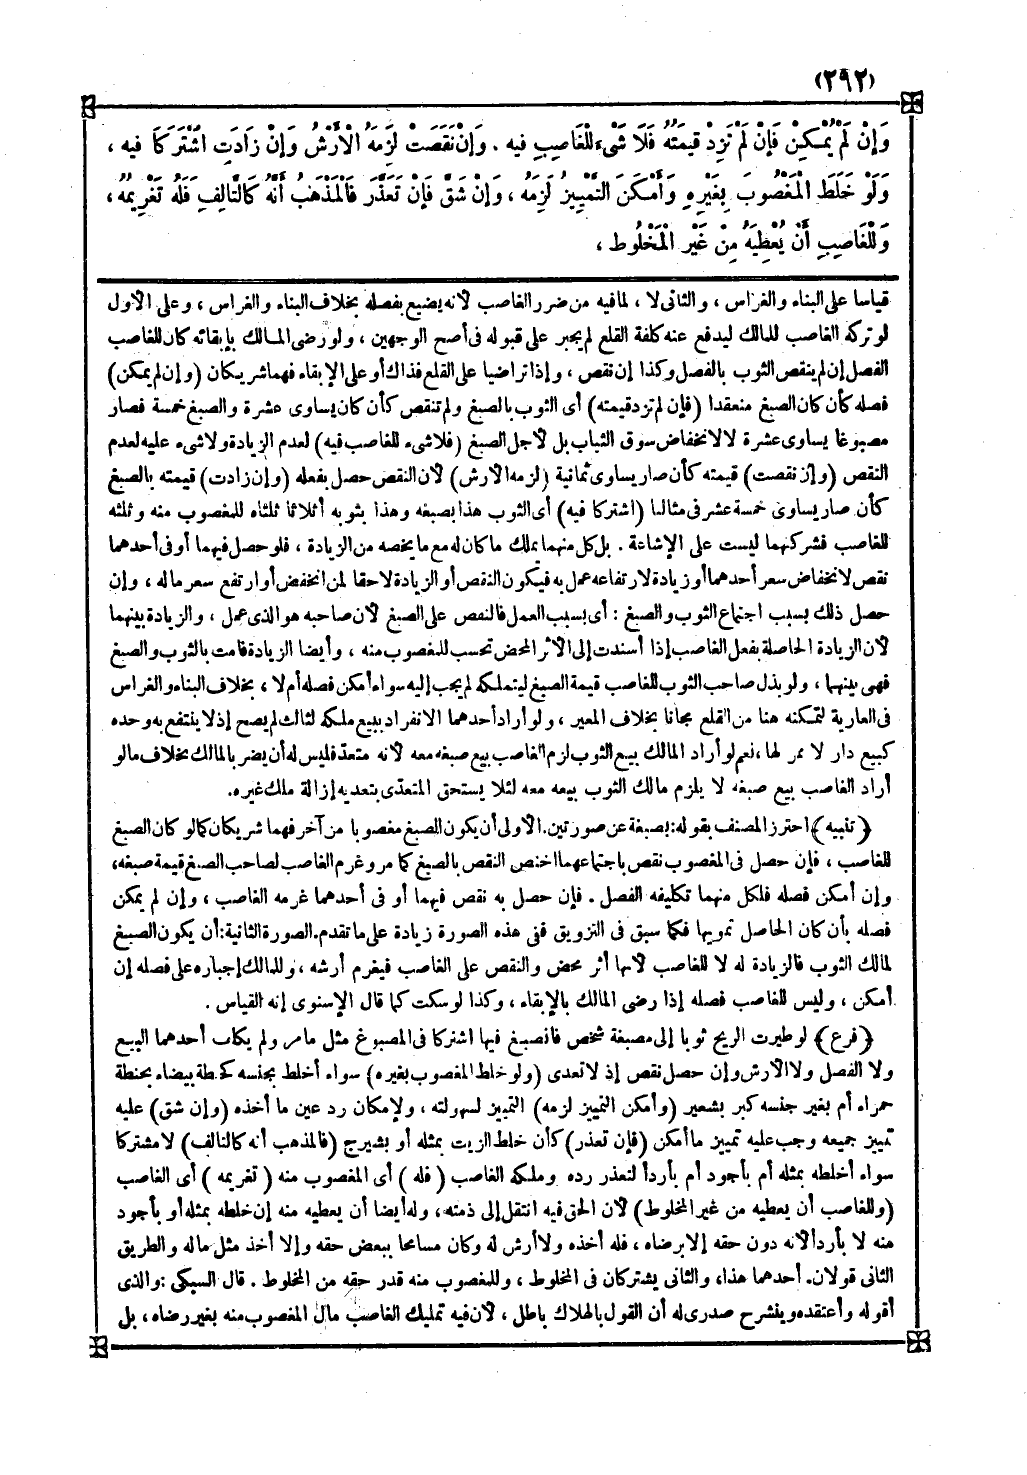 (٢٩٢)
وَإِنْ لَمْ يُمْكِنْ فَإِنْ لَمْ تَزِدْ قِيمَتُهُ فَلَا شَىْءَ لِلْغَاصِبِ فِيهِ . وَإِنْ نَقَصَتْ لَزِمَهُ الْأَرْشُ وَإِنْ زَادَتِ اشْتَرَكَا فِيهِ ،
وَلَوْ خَلَطَ الْمَغْصُوبَ بِغَيْرِهِ وَأَمْكَنَ التَّمْيِيزُ لَزِمَهُ ، وَإِنْ شَقَّ فَإِنْ تَعَذَّرَ فَالْمَذْهَبُ أَنَّهُ كَالتَّالِفِ فَلَهُ تَغْرِيمُهُ ،
وَلِلْغَاصِبِ أَنْ يُعْطِيَهُ مِنْ غَيْرِ الْمَخْلُوطِ ،
قياسا على البناء والغراس ، والثانى لا ، لمافيه من ضرر الغاصب لأنه يضيع بفصله بخلاف البناء والغراس ، وعلى الأول
لو تركه الغاصب للمالك ليدفع عنه كلفة القلع لم يجبر على قبوله فى أصح الوجهين ، ولو رضى المالك بإبقائه كان للغاصب
الفصل إن لم ينقص الثوب بالفصل وكذا إن نقص ، وإذا تراضيا على القلع فذاك أو على الإبقاء فهما شريكان (وإن لم يمكن)
فصله كأن كان الصبغ منعقدا (فإن لم تزد قيمته) أى الثوب بالصبغ ولم تنقص كأن كان يساوى عشرة والصبغ خمسة فصار
مصبوغا يساوى عشرة لا لانخفاض سوق الثياب بل لأجل الصبغ (فلاشىء للغاصب فيه) لعدم الزيادة ولاشىء عليه لعدم
النقص (وإن نقصت) قيمته كأن صار يساوى ثمانية (لزمه الأرش) لأن النقص حصل بفعله (وإن زادت) قيمته بالصبغ
كأن صار يساوى خمسة عشر فى مثالنا (اشتركا فيه) أى الثوب هذا بصبغه وهذا بثوبه أثلاثا ثلثاه للمغصوب منه وثلثه
للغاصب فشركتهما ليست على الإشاعة . بل كل منهما يملك ما كان له مع ما يخصه من الزيادة ، فلو حصل فيهما أو فى أحدهما
نقص لانخفاض سعر أحدهما أو زيادة لارتفاعه عمل به فيكون النقص أو الزيادة لاحقا لمن انخفض أو ارتفع سعر ماله ، وإن
حصل ذلك بسبب اجتماع الثوب والصبغ : أى بسبب العمل فالنقص على الصبغ لأن صاحبه هو الذى عمل ، والزيادة بينهما
لأن الزيادة الحاصلة بفعل الغاصب إذا أسندت إلى الأثر المحض تحسب للمغصوب منه ، وأيضا الزيادة قامت بالثوب والصبغ
فهى بينهما ، ولو بذل صاحب الثوب للغاصب قيمة الصبغ ليتملكه لم يجب إليه سواء أمكن فصله أم لا ، بخلاف البناء والغراس
فى العارية لتمكنه هنا من القلع مجانا بخلاف المعير ، ولو أراد أحدهما الانفراد ببيع ملكه لثالث لم يصح إذ لا ينتفع به وحده
كبيع دار لا ممر لها ،نعم لو أراد المالك بيع الثوب لزم الغاصب بيع صبغه معه لأنه متعد فليس له أن يضر بالمالك بخلاف مالو
أراد الغاصب بيع صبغه لا يلزم مالك الثوب بيعه معه لئلا يستحق المتعدى بتعديه إزالة ملك غيره.
(تنبيه) احترز المصنف بقوله: بصبغة عن صورتين. الأولى أن يكون الصبغ مغصوبا من آخر فهما شريكان كما لو كان الصبغ
للغاصب ، فإن حصل فى المغصوب نقص باجتماعهما اختص النقص بالصبغ كما مر وغرم الغاصب لصاحب الصبغ قيمة صبغه،
وإن أمكن فصله فلكل منهما تكليفه الفصل . فإن حصل به نقص فيهما أو فى أحدهما غرمه الغاصب ، وإن لم يمكن
فصله بأن كان الحاصل تمويها فكما سبق فى التزويق ففى هذه الصورة زيادة على ما تقدم. الصورة الثانية:أن يكون الصبغ
لمالك الثوب فالزيادة له لا للغاصب لأنها أثر محض والنقص على الغاصب فيغرم أرشه ،وللمالك إجباره على فصله إن
أمكن ، وليس للغاصب فصله إذا رضى المالك بالإبقاء ، وكذا لو سكت كما قال الإسنوى إنه القياس .
(فرع) لو طيرت الريح ثوبا إلى مصبغة شخص فانصبغ فيها اشتركا فى المصبوغ مثل مامر ولم يكلف أحدهما البيع
ولا الفصل ولا الأرش وإن حصل نقص إذ لا تعدى (ولو خلط المغصوب بغيره) سواء أخلط بجنسه كحنطة بيضاء بحنطة
حمراء أم بغير جنسه كبر بشعير (وأمكن التمييز لزمه) التمييز لسهولته ، ولإمكان رد عين ما أخذه (وإن شق) عليه
تمييز جميعه وجب عليه تمييز ما أمكن (فإن تعذر) كأن خلط الزيت بمثله أو بشيرج (فالمذهب أنه كالتالف) لا مشتركا
سواء أخلطه بمثله أم بأجود أم بأردأ لتعذر رده وملكه الغاصب (فله) أى المغصوب منه (تغريمه) أى الغاصب
(وللغاصب أن يعطيه من غير المخلوط) لأن الحق فيه انتقل إلى ذمته، وله أيضا أن يعطيه منه إن خلطه بمثله أو بأجود
منه لا بأردأ لأنه دون حقه إلا برضاه ، فله أخذه ولا أرش له وكان مسامحا ببعض حقه وإلا أخذ مثل ماله والطريق
الثانى قولان. أحدهما هذا، والثانى يشتركان فى المخلوط ، وللمغصوب منه قدر حقه من المخلوط . قال السبكى :والذى
أقوله وأعتقده وينشرح صدرى له أن القول بالهلاك باطل ، لأن فيه تمليك الغاصب مال المغصوب منه بغير رضاه ، بل